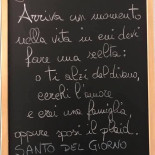 Arriva un momento
nella vita in cui devi
fare una scelta:
o ti alzi dal divano,
cerchi l'amore
e crei una famiglia,
oppure sposi il plaid.
SANTO DEL GIORNO